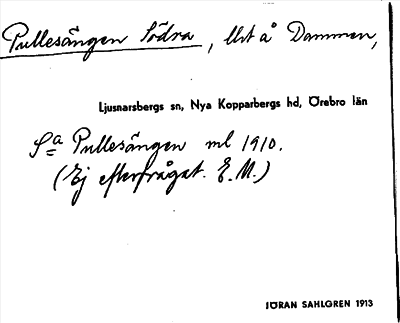 Pullesängen Södra, Urt å Dammen,
Ljusnarsbergs sn, Nya Kopparbergs hd, Örebro län
Sa Pullesängen ml 1910.
(Ej efterfrågat. E.M.)
JÖRAN SAHLGREN 1913